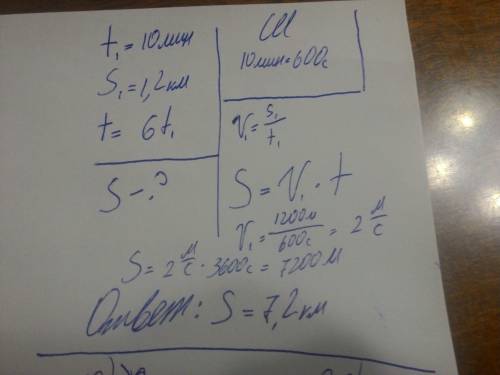 t₁ = 10 мин
S₁ = 1,2 км
t = 6t₁
S - ?
СИ
10 мин = 600с
V₁ = S₁/t₁
S = V₁ · t
V₁ = 1200м/600с = 2 м/с
S = 2 м/с · 3600с = 7200м
Ответ: S = 7,2 км